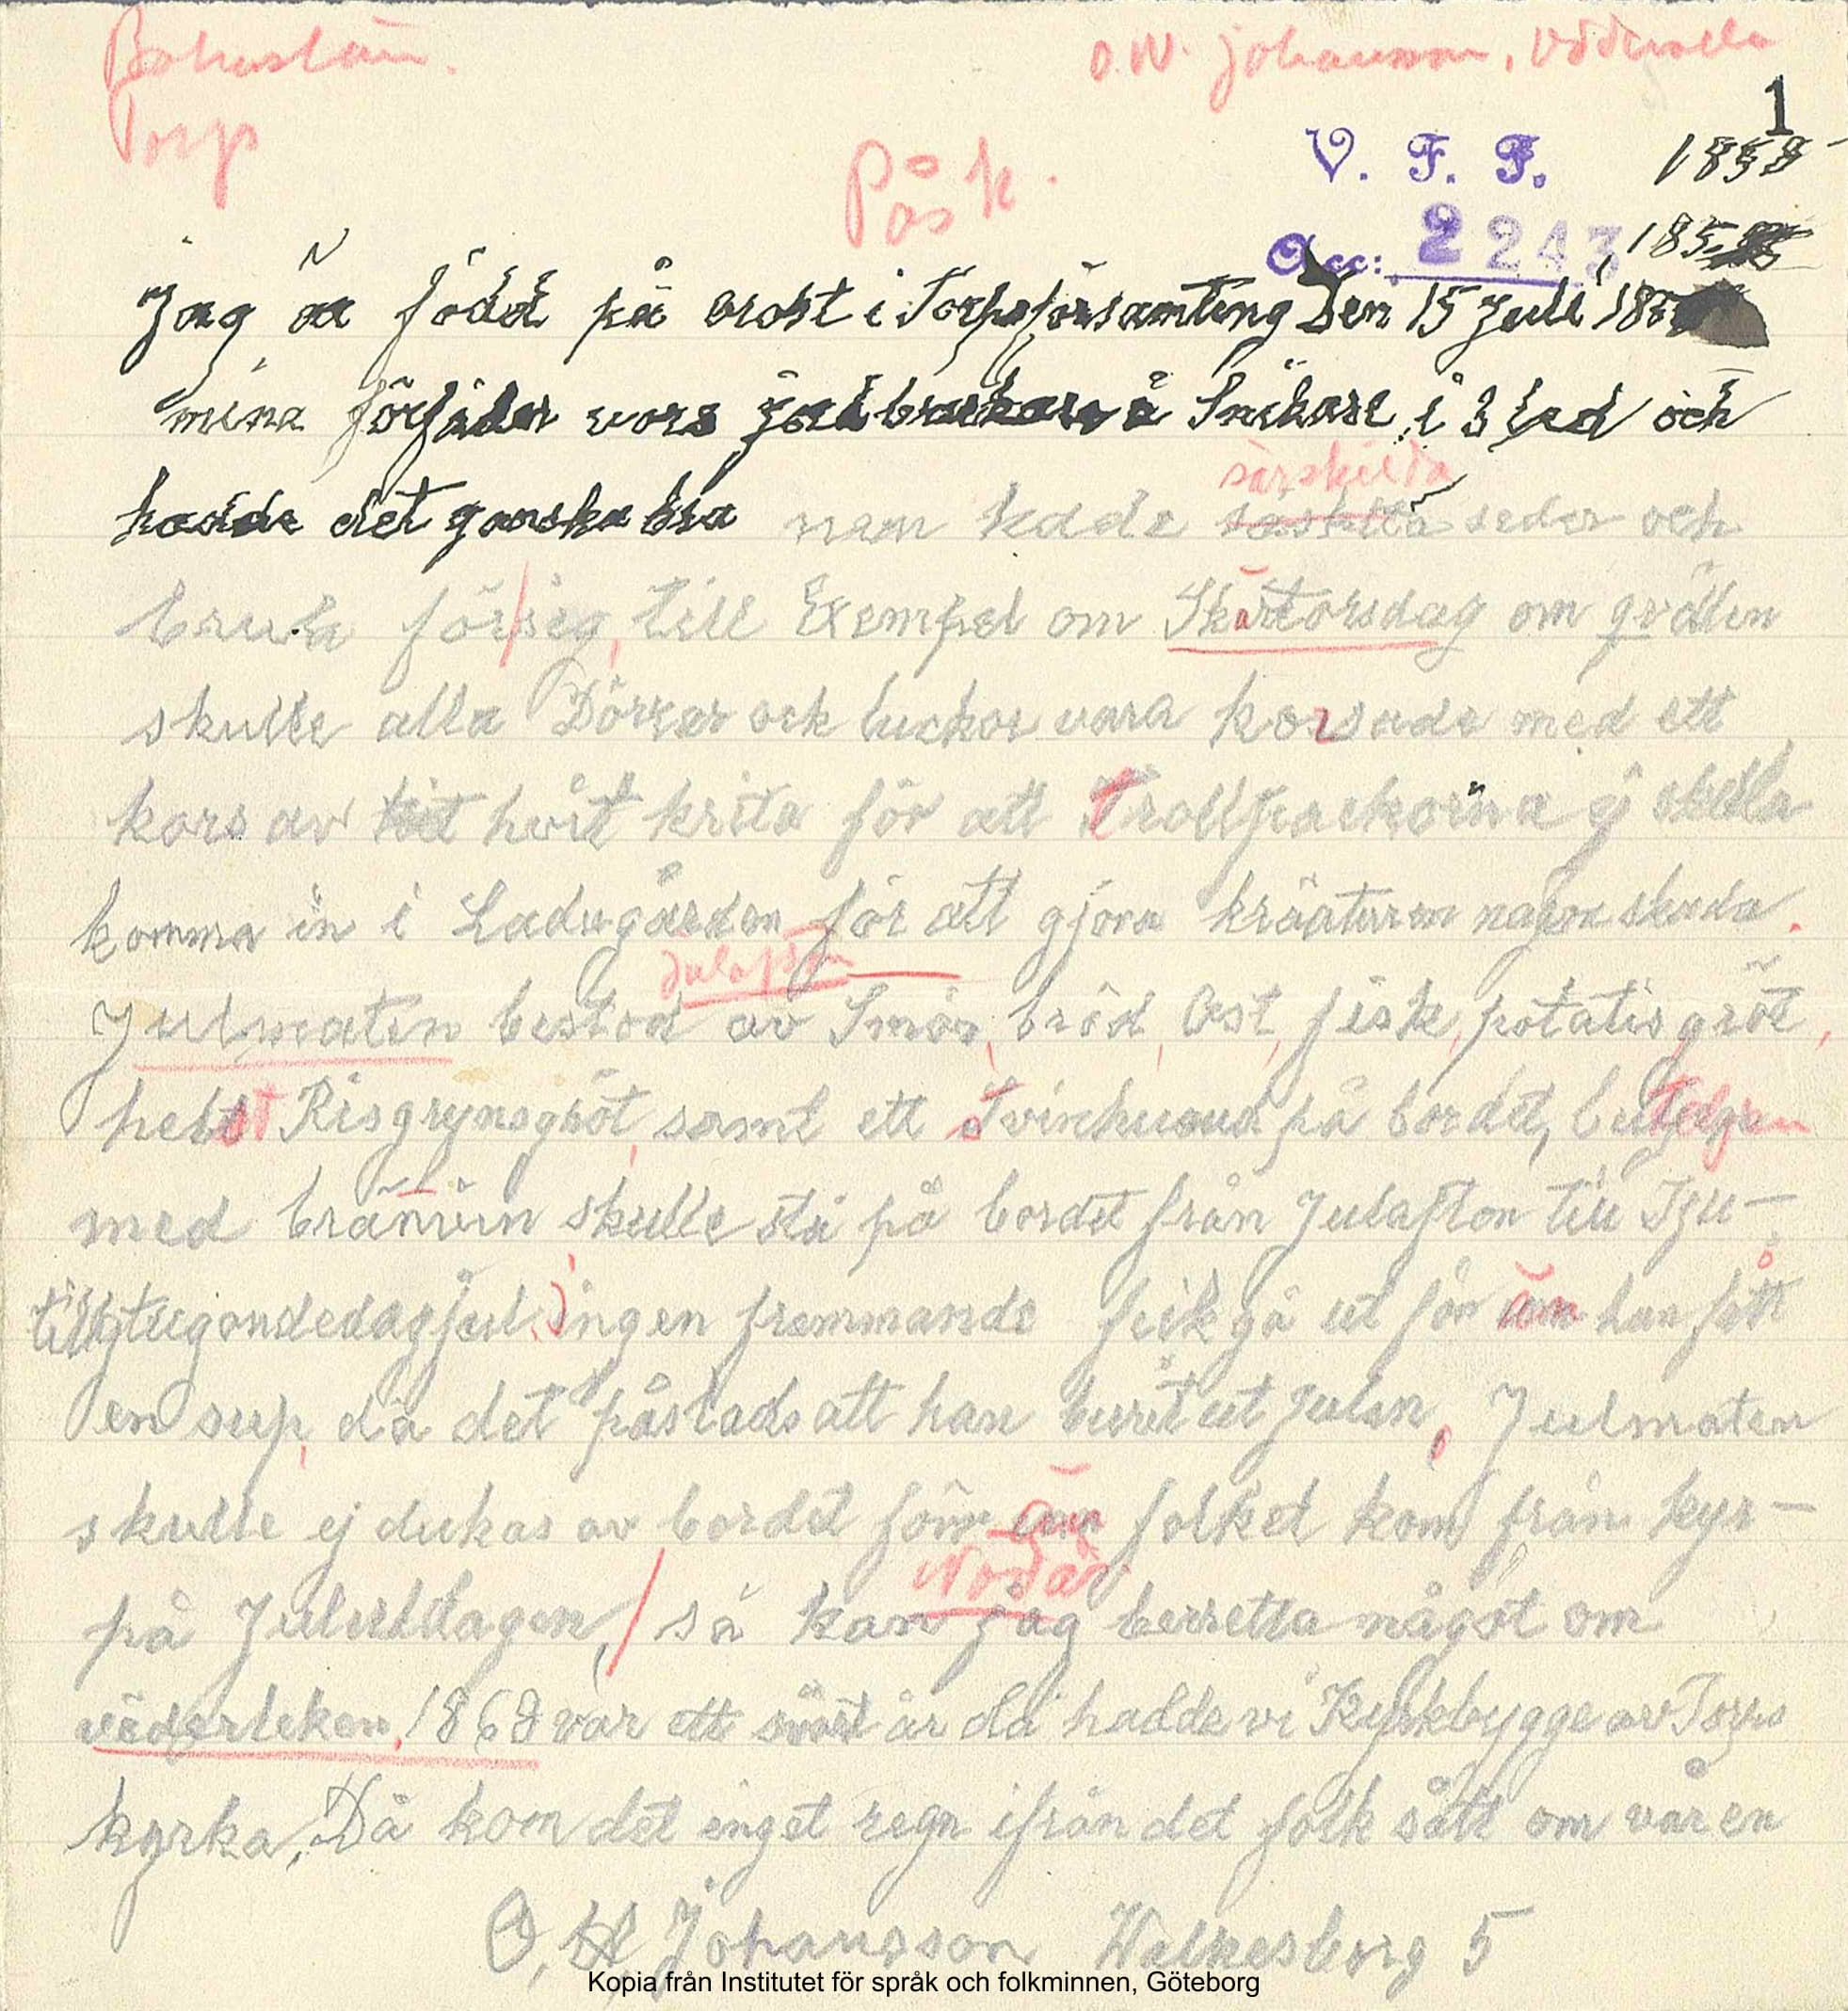 Bohuslän.
O.W. Johansson, Uddevalla
Torp
1
V. F. F.
1858
Påsk.
Acc: 2243
185
Jag är född på orost i Torpsförsamling Den 15 Juli 18
mina förfäder vors å Snikare i 3 led och
hadde det ganska bra nam hade särskilda seder och
bruk för sig, till Exempel om Skärtorsdag om qvällen
skulle alla Dörrar ock luckor vara korsade med ett
kors av hvit krita för att Trollpackorna ej skulla
komma in i Ladugården för att gjöra kräaturen någon skada.
Julafton
Julmaten bestod av Smör, bröd, Ost, fisk, potatis, gröt,
helst Risgrynsgröt, samt ett Svinhuvud på bordet, butelgen
med bränvin skulle stå på bordet från Julafton till Tju-
tjugondedagjul. ingen fremmande fick gå ut för än han fått
en sup, då det påstads att han burit ut Julen. Julmaten
skulle ej dukas av bordet förr än folket kom från kyr-
på Jululdagen, så kan jag berretta något om
väderleken, 1868 var ett svårt år då hadde vi Kyrkbygge av Torps
kyrka, Då kom det inget regn ifrån det folk sått om våren
O, W, Johansson Walkesborg 5
Kopia från Institutet för språk och folkminnen, Göteborg